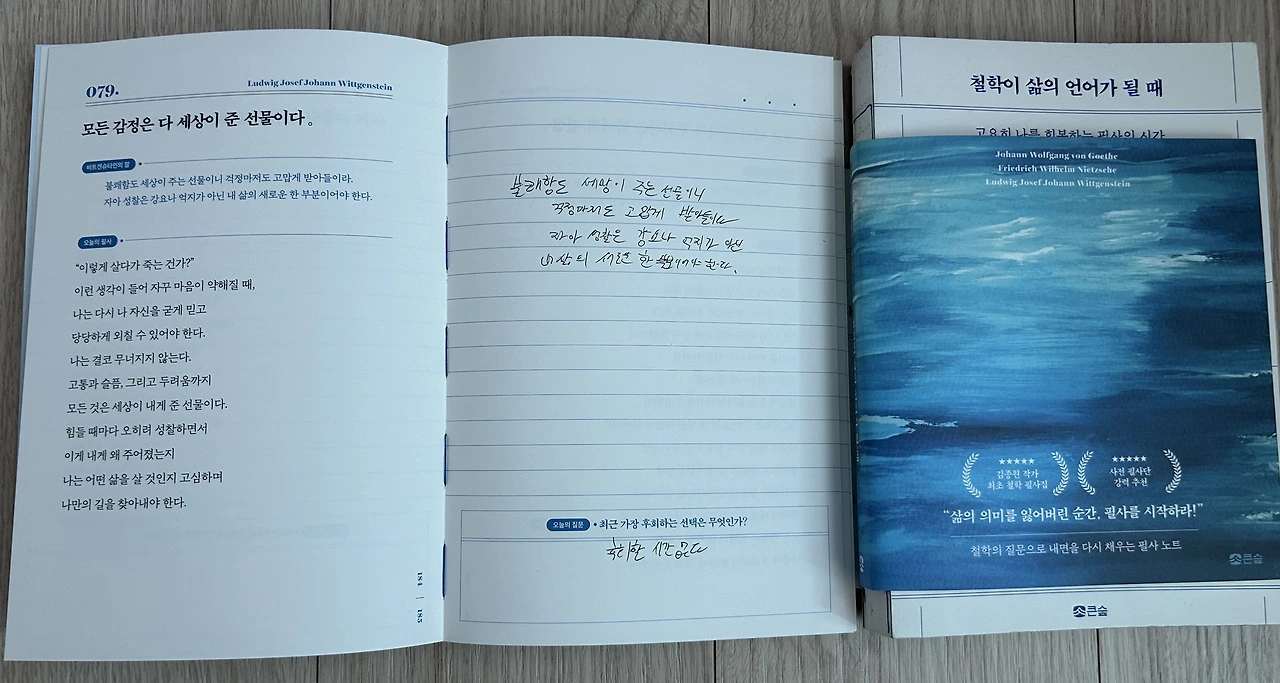 079.
Ludwig Josef Johann Wittgenstein
모든 감정은 다 세상이 준 선물이다.
비트겐슈타인의 말
불쾌함도 세상이 주는 선물이니 걱정마저도 고맙게 받아들이라.
자아 성찰은 강요나 억지가 아닌 내 삶의 새로운 한 부분이어야 한다.
오늘의 필사
“이렇게 살다가 죽는 건가?”
이런 생각이 들어 자꾸 마음이 약해질 때,
나는 다시 나 자신을 굳게 믿고
당당하게 외칠 수 있어야 한다.
나는 결코 무너지지 않는다.
고통과 슬픔, 그리고 두려움까지
모든 것은 세상이 내게 준 선물이다.
힘들 때마다 오히려 성찰하면서
이게 내게 왜 주어졌는지
나는 어떤 삶을 살 것인지 고심하며
나만의 길을 찾아내야 한다.
184 | 185
불쾌함도 세상이 주는 선물이니
걱정마저도 고맙게 받아들이라
자아 성찰은 강요나 억지가 아닌
내 삶의 새로운 한 부분이어야 한다.
오늘의 질문
• 최근 가장 후회하는 선택은 무엇인가?
후회할 시간 없다
철학이 삶의 언어가 될 때
고요히 나를 회복하는 필사의 시간
Johann Wolfgang von Goethe
Friedrich Wilhelm Nietzsche
Ludwig Josef Johann Wittgenstein
김종원 작가
최초 철학 필사집
사전 필사단
강력 추천
“삶의 의미를 잃어버린 순간, 필사를 시작하라!”
철학의 질문으로 내면을 다시 채우는 필사 노트
큰숲
큰숲